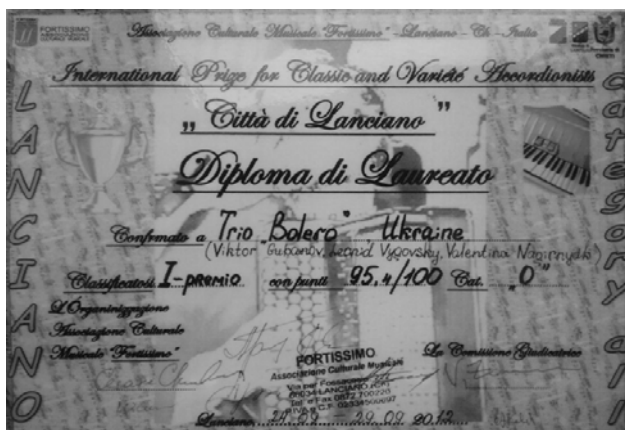 FORTISSIMO
Associazione Culturale Musicale "Fortissimo" - Lanciano - Ch - Italia
International Prize for Classic and Varieté Accordionists
„ Città di Lanciano ”
Diploma di Laureato
Confrmato a Trio „Bolero” Ukraine
(Viktor Gubanov, Leonid Vygovsky, Valentina Nagirnyak)
Classificatosi I-premio con punti 95,4/100 Cat. „O”
L'Organinizzazione
Associazione Culturale
Musicale "Fortissimo"
La Comissione Giudicatrice
FORTISSIMO
Associazione Culturale Musicale
Via per Fossacesia
66034 LANCIANO
Lanciano 24.09 - 29.09 2012
LANCIANO
category all